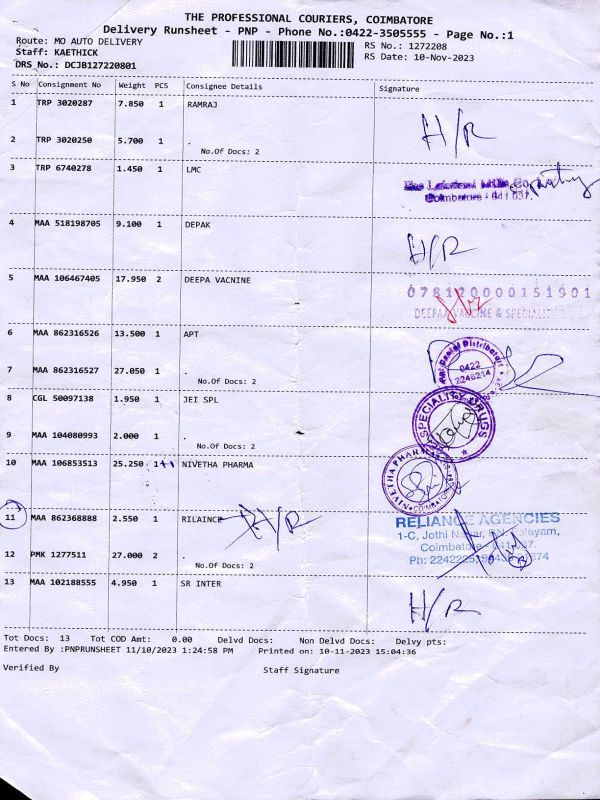 THE PROFESSIONAL COURIERS, COIMBATORE
Delivery Runsheet - PNP - Phone No.:0422-3505555 - Page No.:1
Route: MO AUTO DELIVERY
RS No.: 1272208
Staff: KAETHICK
RS Date: 10-Nov-2023
DRS No.: DCJB127220801
S No Consignment No Weight PCS Consignee Details Signature
1 TRP 3020287 7.850 1 RAMRAJ
H/R
2 TRP 3020250 5.700 1 .
No.Of Docs: 2
3 TRP 6740278 1.450 1 LMC
Coimbatore - 641 037.
4 MAA 518198705 9.100 1 DEPAK
H/R
5 MAA 106467405 17.950 2 DEEPA VACNINE
078120000151901
DEEPAA VACCINE & SPECIALIT
6 MAA 862316526 13.500 1 APT
7 MAA 862316527 27.050 1 .
No.Of Docs: 2
0422
2246214
8 CGL 50097138 1.950 1 JEI SPL
SPECIALITY DRUGS
9 MAA 104080993 2.000 1 .
No.Of Docs: 2
10 MAA 106853513 25.250 1 NIVETHA PHARMA
NIVETHA PHARMA
COIMBATORE
11 MAA 862368888 2.550 1 RILAINCE
H/R
RELIANCE AGENCIES
1-C, Jothi Nagar, Palayam,
Coimbatore - 641 037.
Ph: 2242225,
12 PMK 1277511 27.000 2 .
No.Of Docs: 2
13 MAA 102188555 4.950 1 SR INTER
H/R
Tot Docs: 13 Tot COD Amt: 0.00 Delvd Docs: Non Delvd Docs: Delvy pts:
Entered By :PNPRUNSHEET 11/10/2023 1:24:58 PM Printed on: 10-11-2023 15:04:36
Verified By Staff Signature